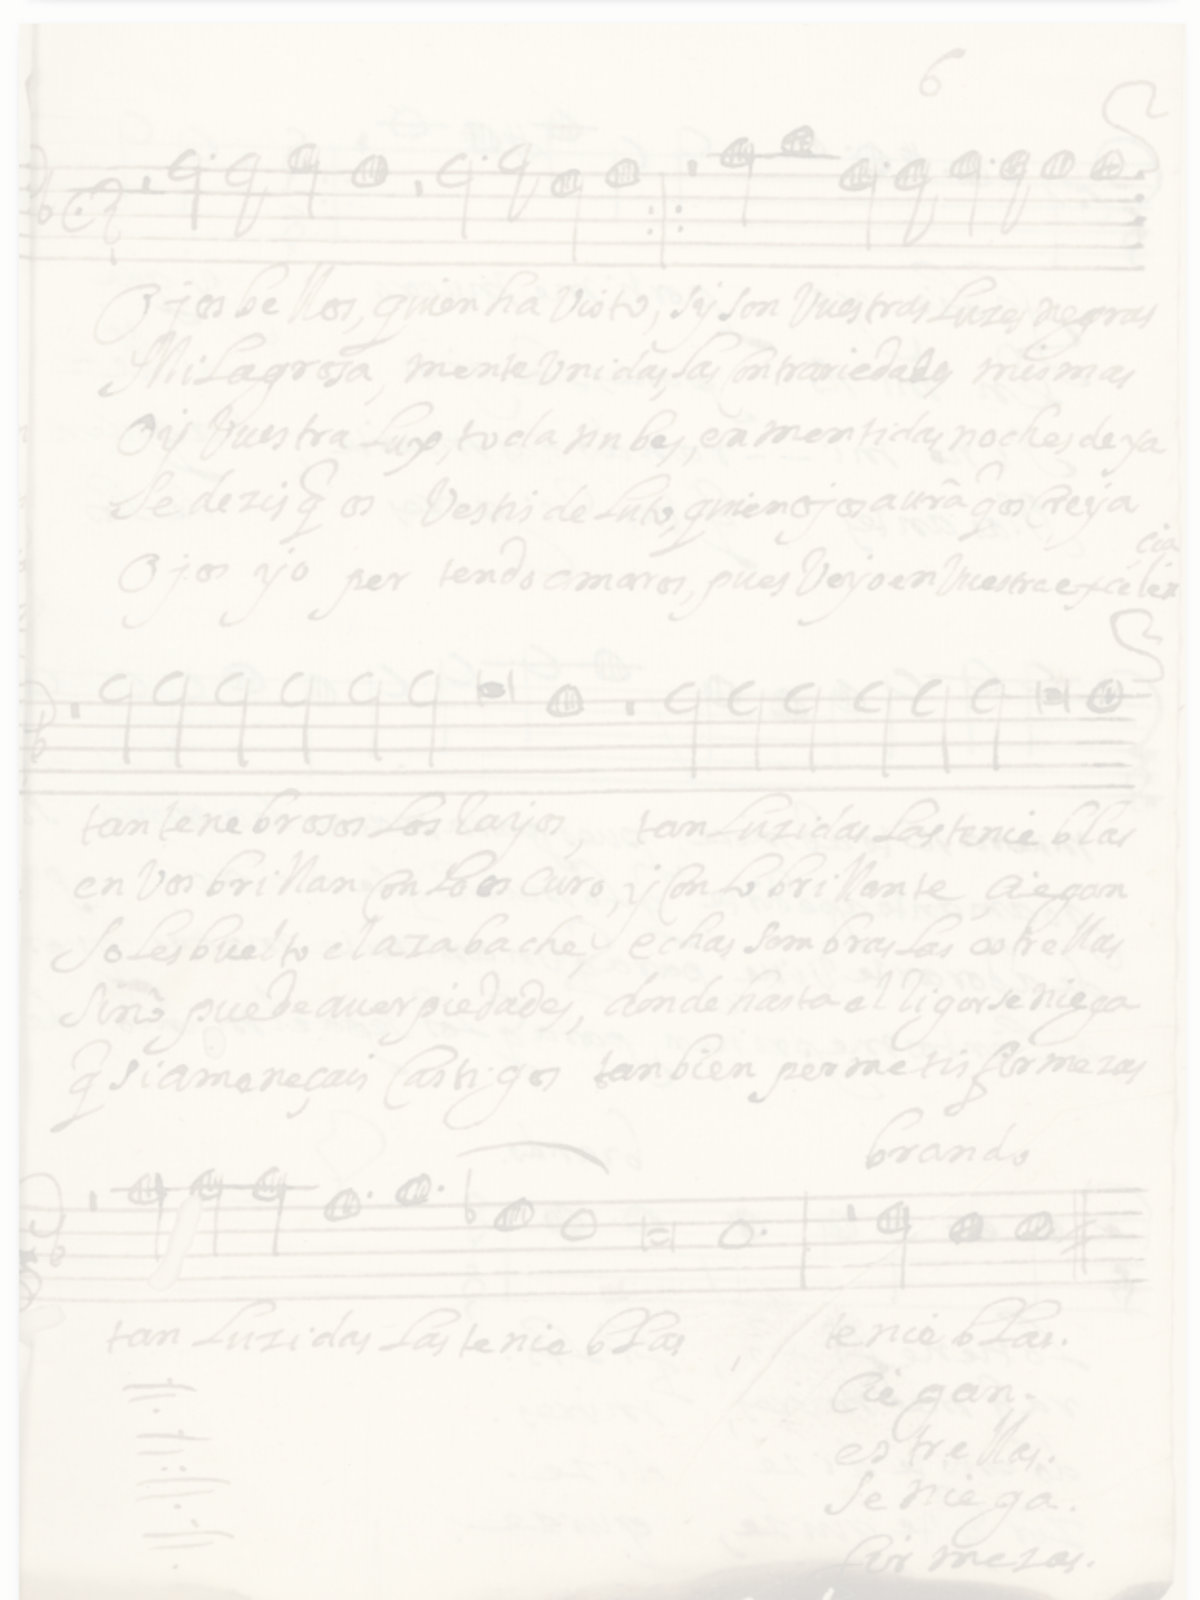 6
Ojos bellos, quien ha visto, sy son vuestras Luzes negras
Milagrosa, mente vnidas las Contrariedades mismas
Oy vuestra Luz, to cla nubes, en mentidas noches de ya
Se dezis q̃ os Vestis de Luto, quien ojos aurâ q̃ os
Ojos yo per tendo amaros, pues Veyo en Vuestra excelen
cia
tan tenebrosos Los Rayos, tan Luzidas Las tenieblas
en Vos brillan Con Lo os curo, y Con Lo brillante Ciegan
So Les buelto el azabache echas Sombras Las estrellas
Sino puede auer piedades, donde hasta el Rigor se niega
q̃ Si ameneçais Castigos tanbien permetis firmezas
brando
tan Luzidas Las tenieblas tenieblas.
Ciegan.
estrellas.
Se niega.
firmezas.